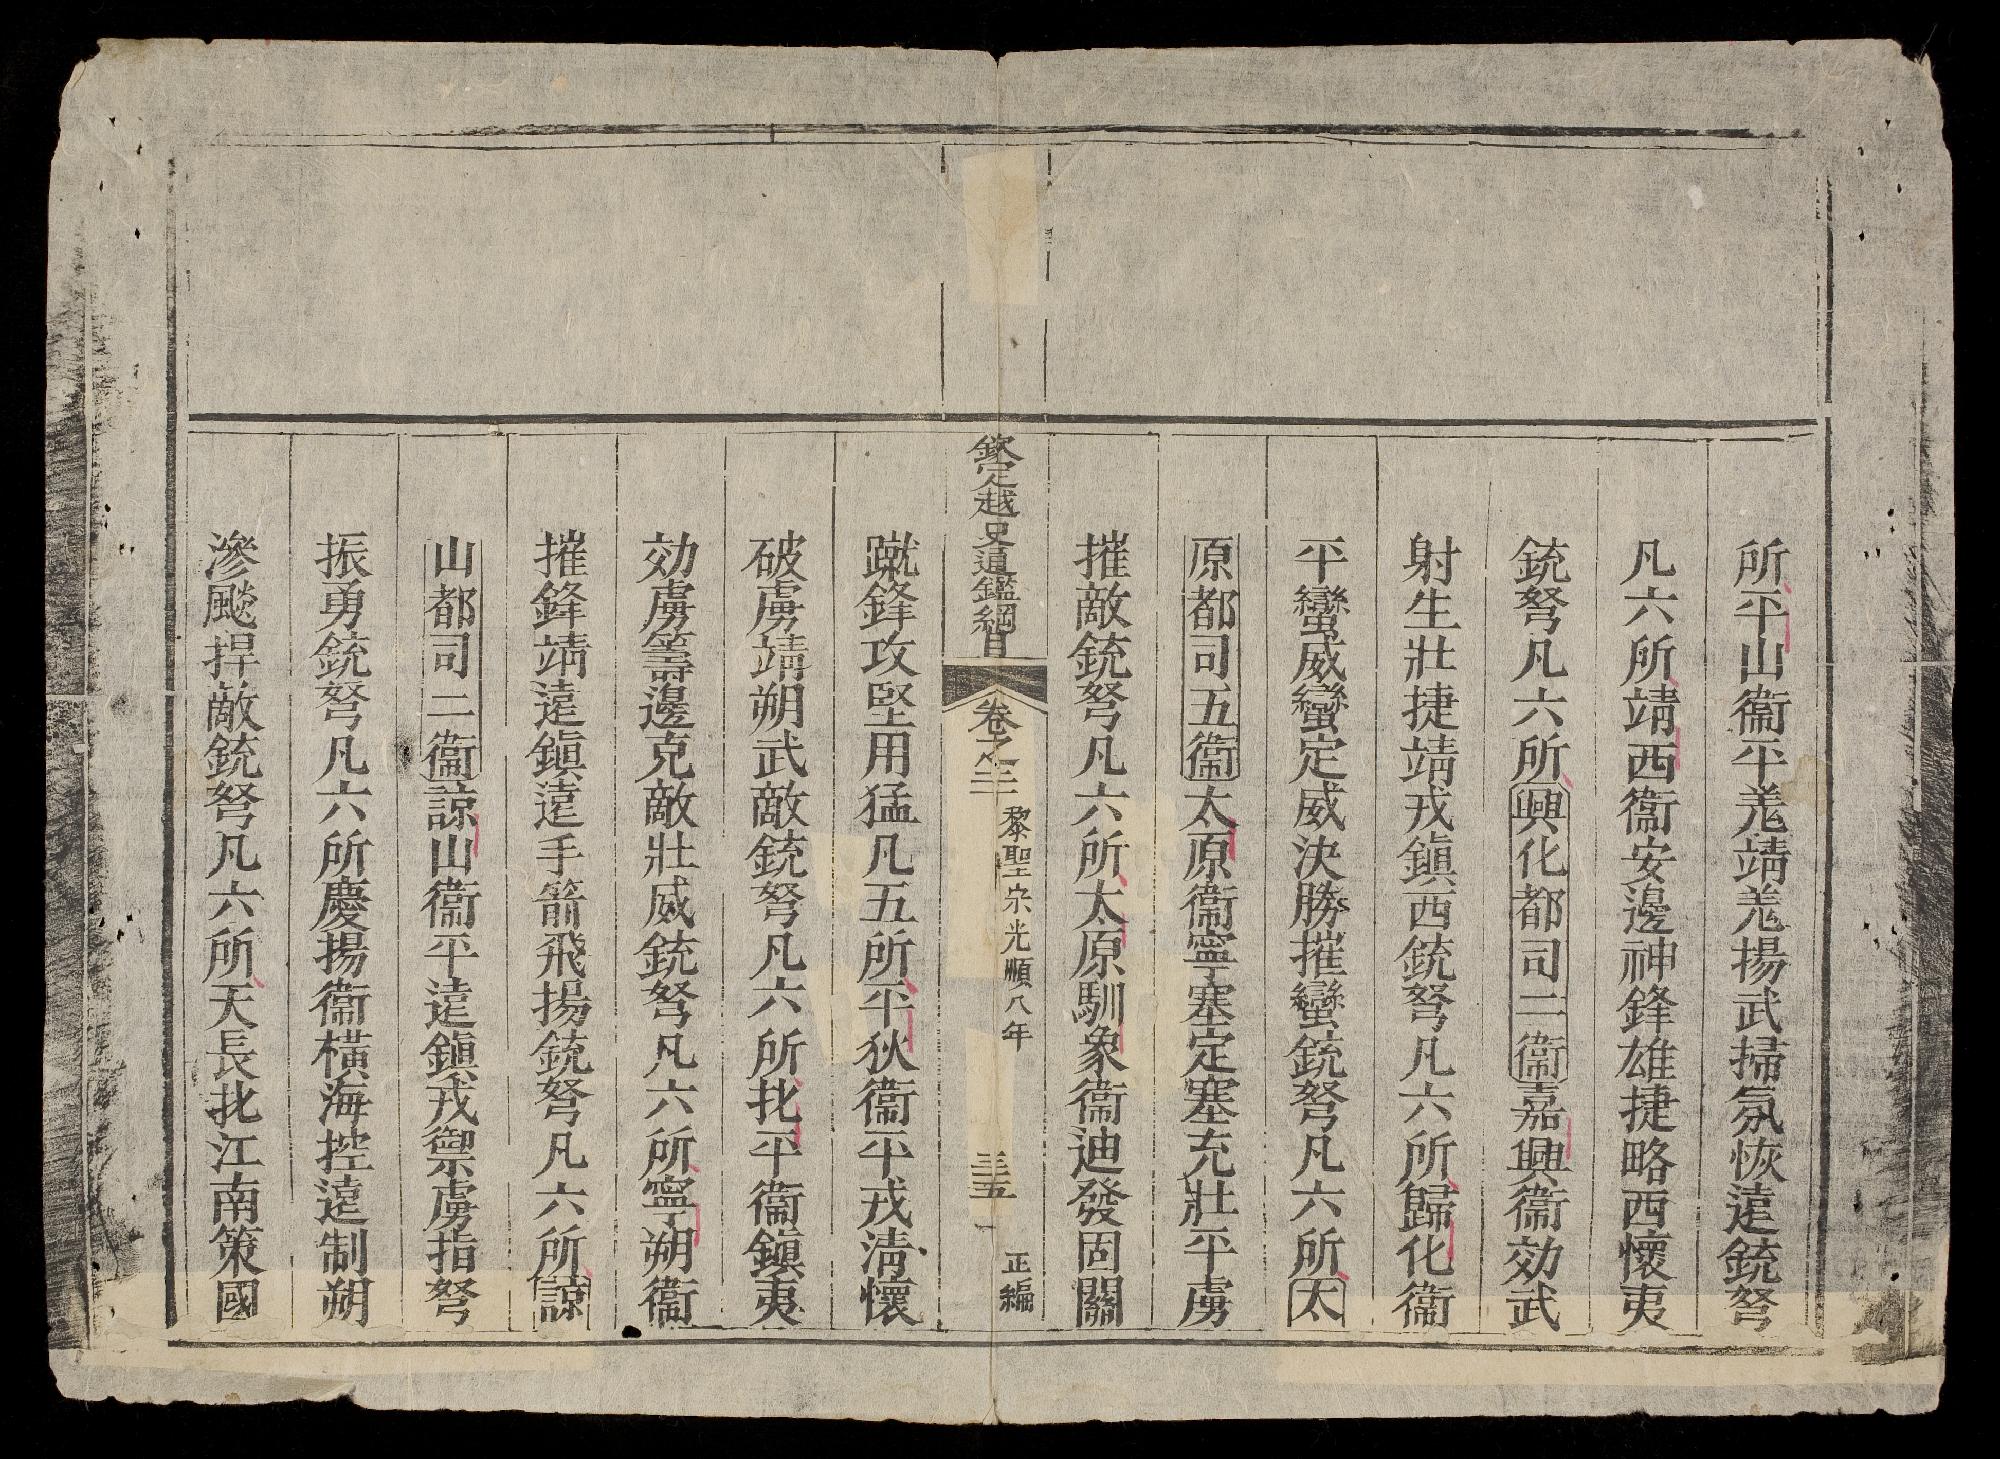 所平山衞平羗靖羗揚武掃氛恢遠銃弩
凡六所靖西衞安邊神鋒雄捷略西懷夷
銃弩凡六所興化都司二衞嘉興衞効武
射生壯捷靖戎鎮西銃弩凡六所歸化衞
平蠻威蠻定威決勝摧蠻銃弩凡六所太
原都司五衞太原衞寧塞定塞充壯平虜
摧敵銃弩凡六所太原馴象衞迪發固關
欽定越史通鑑綱目
卷之二
黎聖宗光順八年
三五
正編
蹴鋒攻堅用猛凡五所平狄衞平戎清懷
破虜靖朔武敵銃弩凡六所北平衞鎮夷
効虜籌邊克敵壯威銃弩凡六所寧朔衞
摧鋒靖遠鎮遠手箭飛揚銃弩凡六所諒
山都司二衞諒山衞平遠鎮戎禦虜指弩
振勇銃弩凡六所慶揚衞橫海控遠制朔
滲颷捍敵銃弩凡六所天長北江南策國